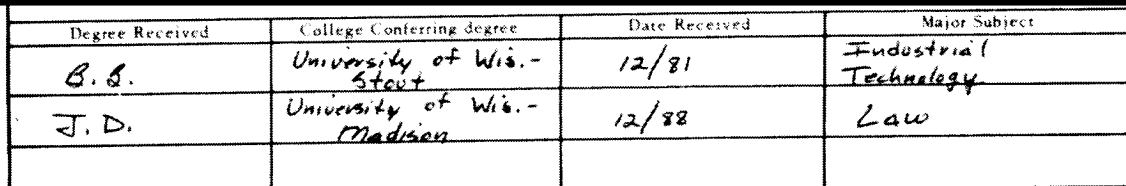 Degree Received College Conferring degree Date Received Major Subject
B.S. University of Wis.- Stout 12/81 Industrial Technology
J.D. University of Wis.- Madison 12/88 Law